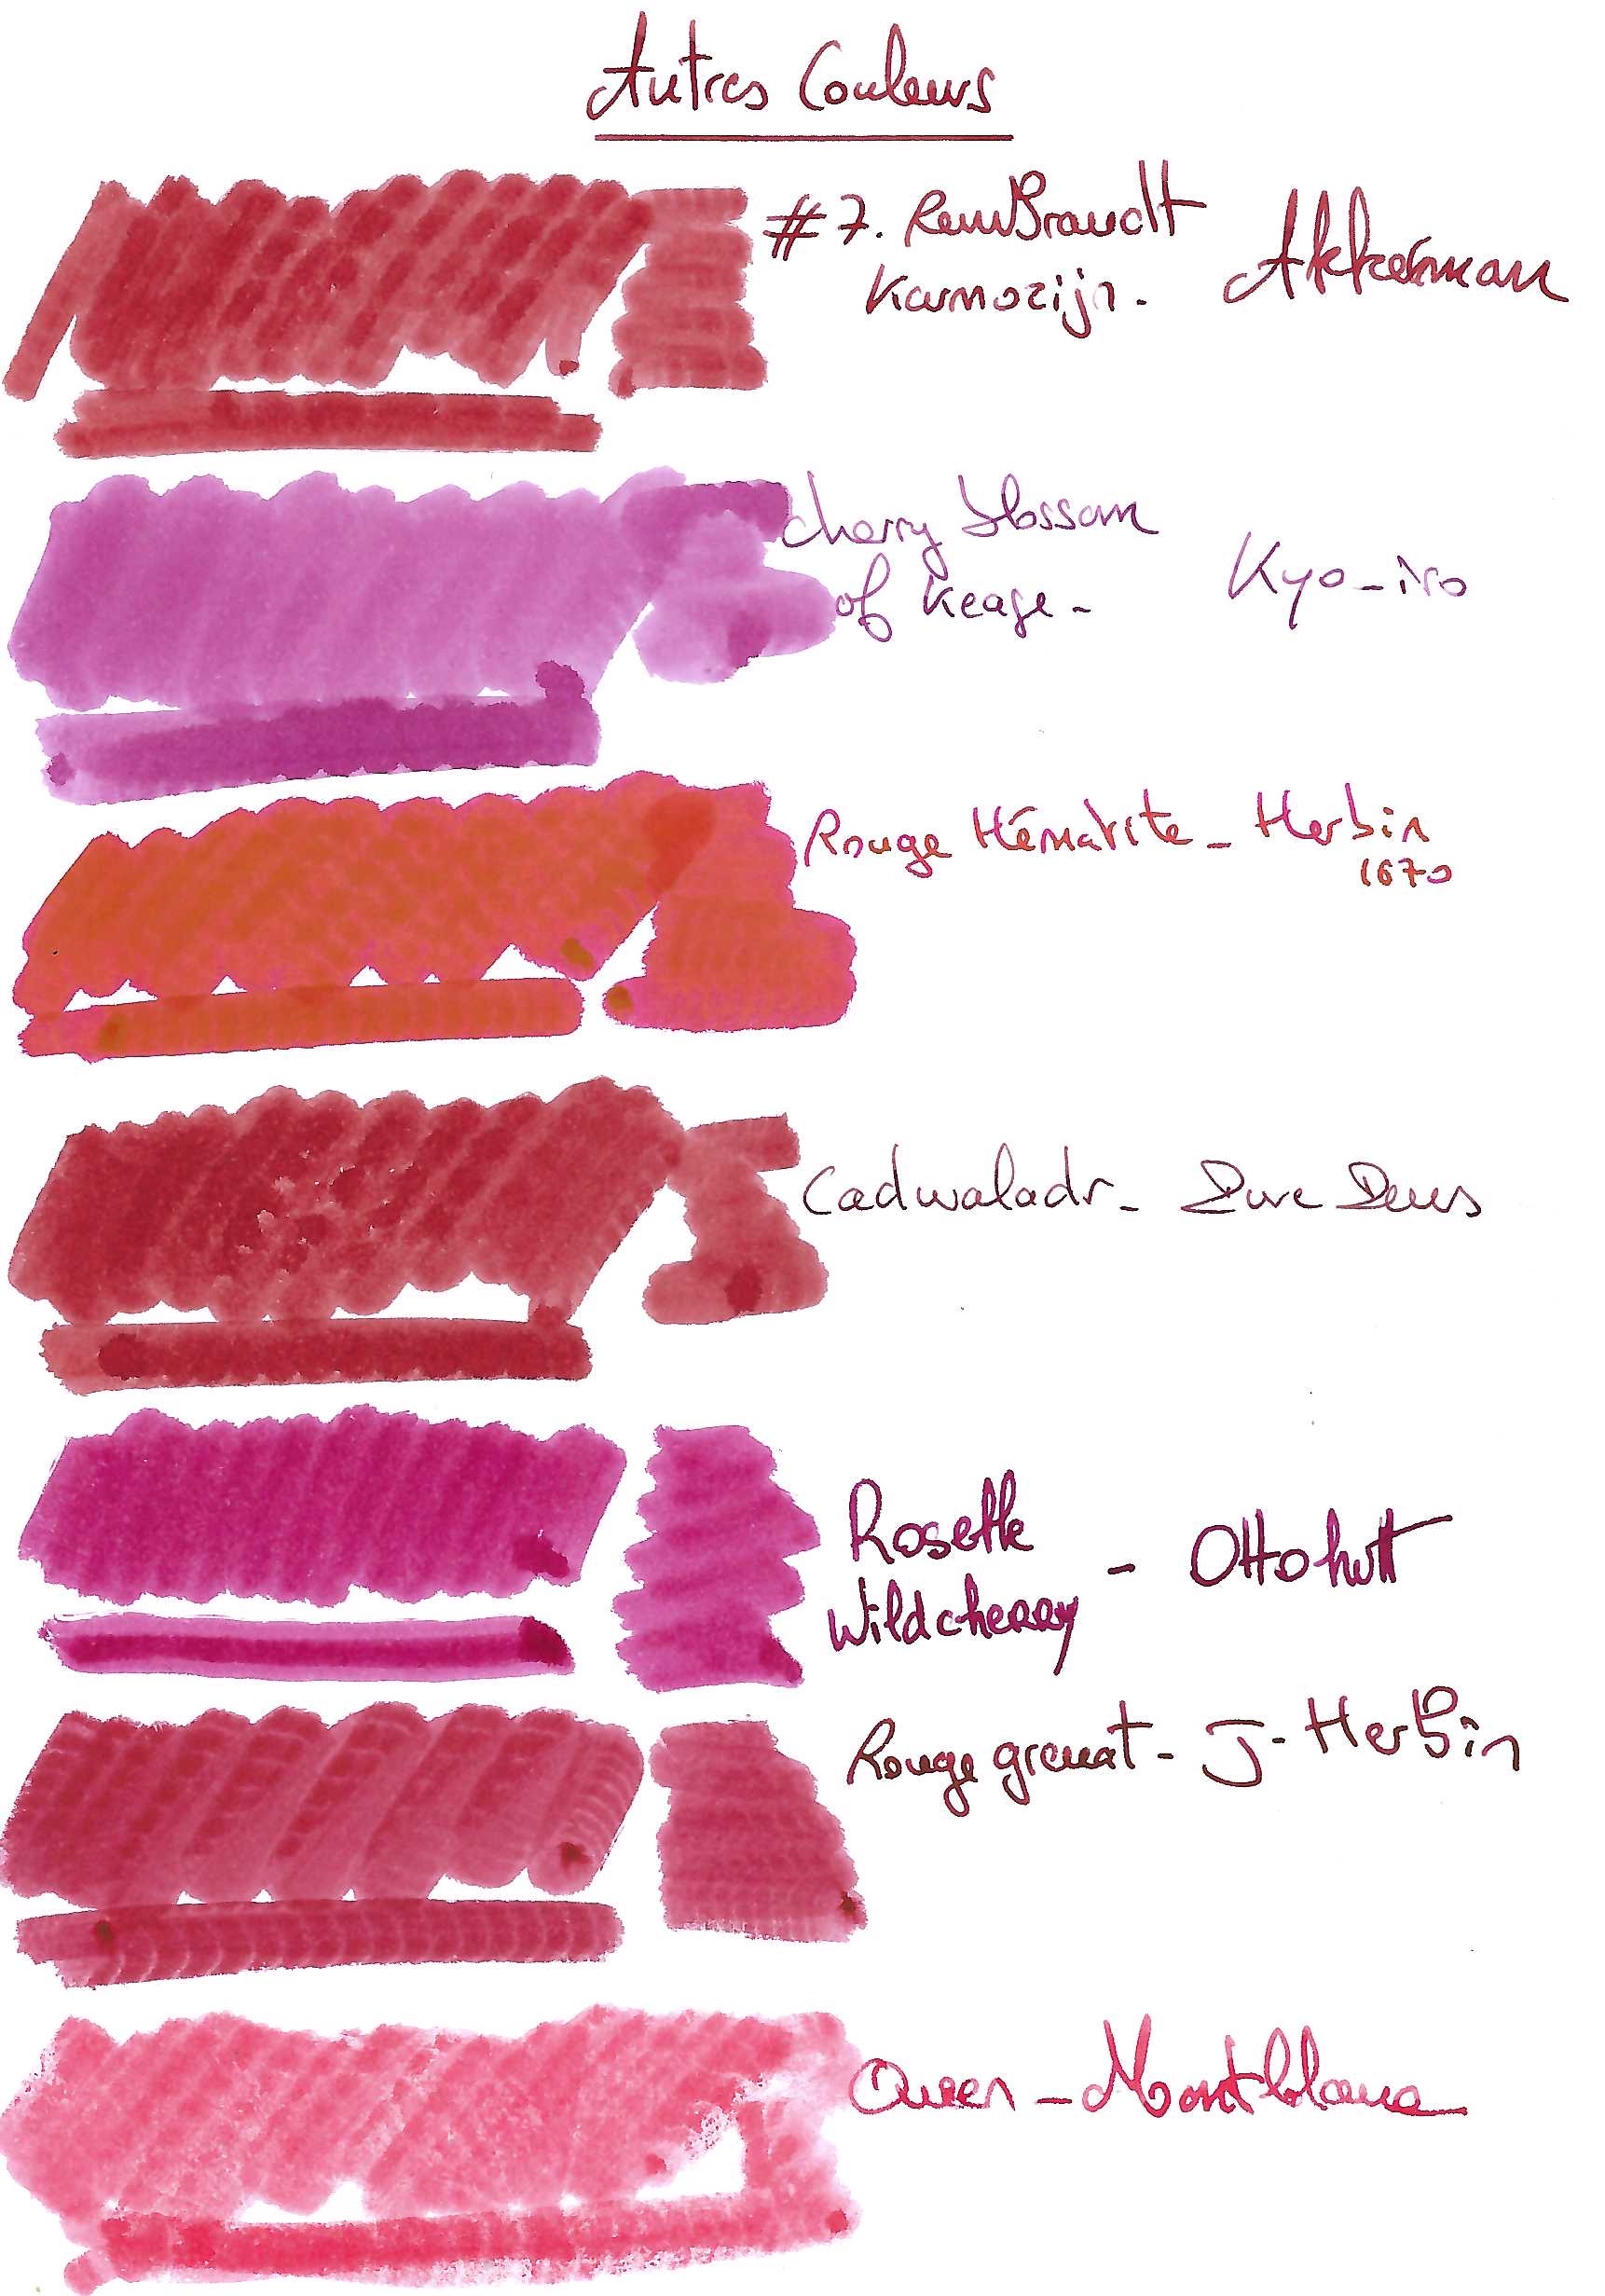 Autres Couleurs
#7. RemBrandt Akkerman
Karmozijn.
cherry blossom
of Keage - Kyo-iro
Rouge Hématite - Herbin
1670
Cadwaladr - Dure Deus
Rosette
Wildcherry - Ottohutt
Rouge grenat - J. HerBin
Queen - Montblanc